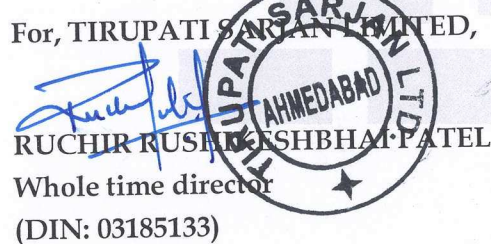 For, TIRUPATI SARJAN LIMITED,
TIRUPATI SARJAN LTD
AHMEDABAD
RUCHIR RUSHIKESHBHAI PATEL
Whole time director
(DIN: 03185133)